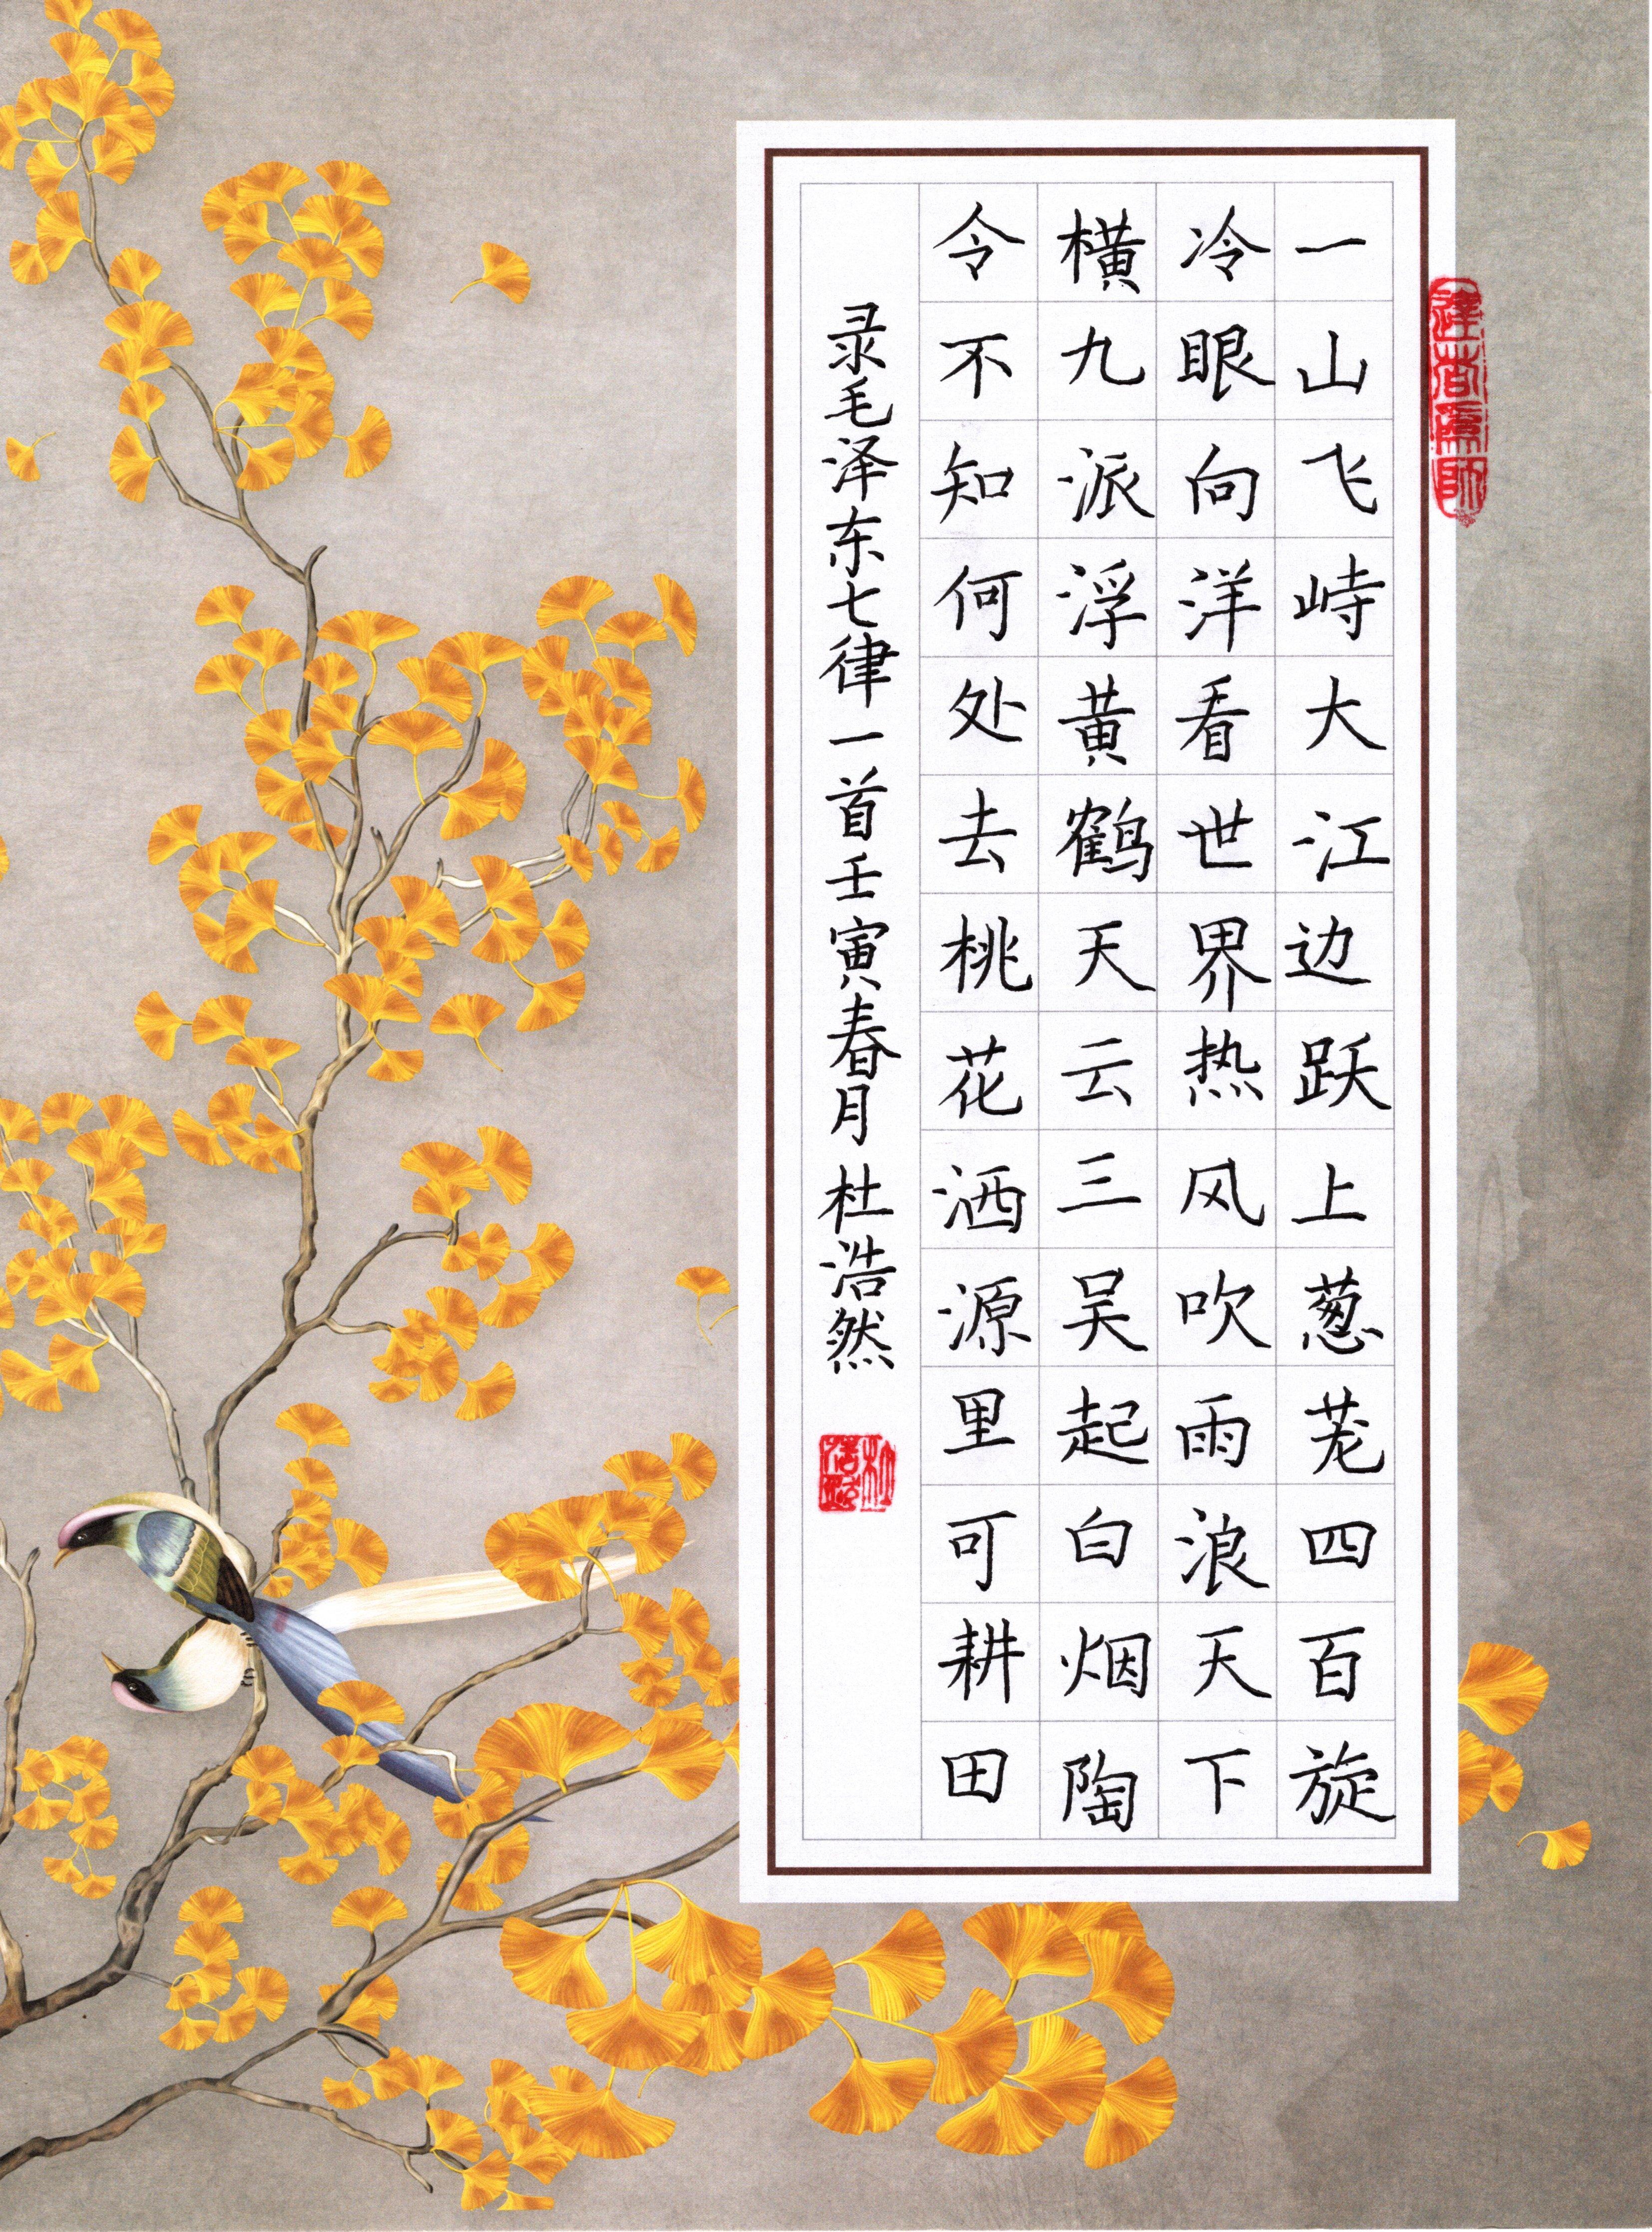 一山飞峙大江边跃上葱茏四百旋
冷眼向洋看世界热风吹雨浪天下
横九派浮黄鹤天云三吴起白烟陶
令不知何处去桃花洒源里可耕田
录毛泽东七律一首壬寅春月杜浩然